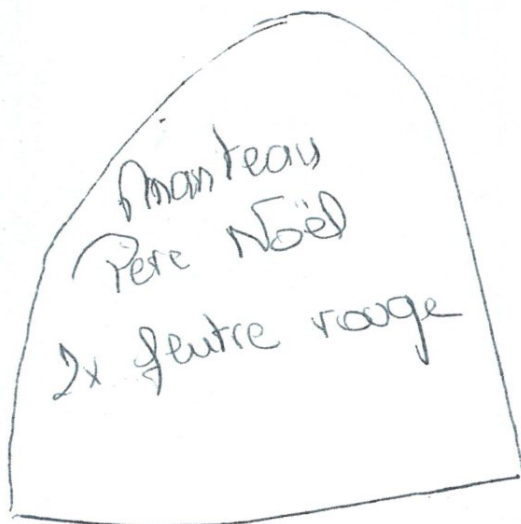 Manteau
Père Noël
2x feutre rouge